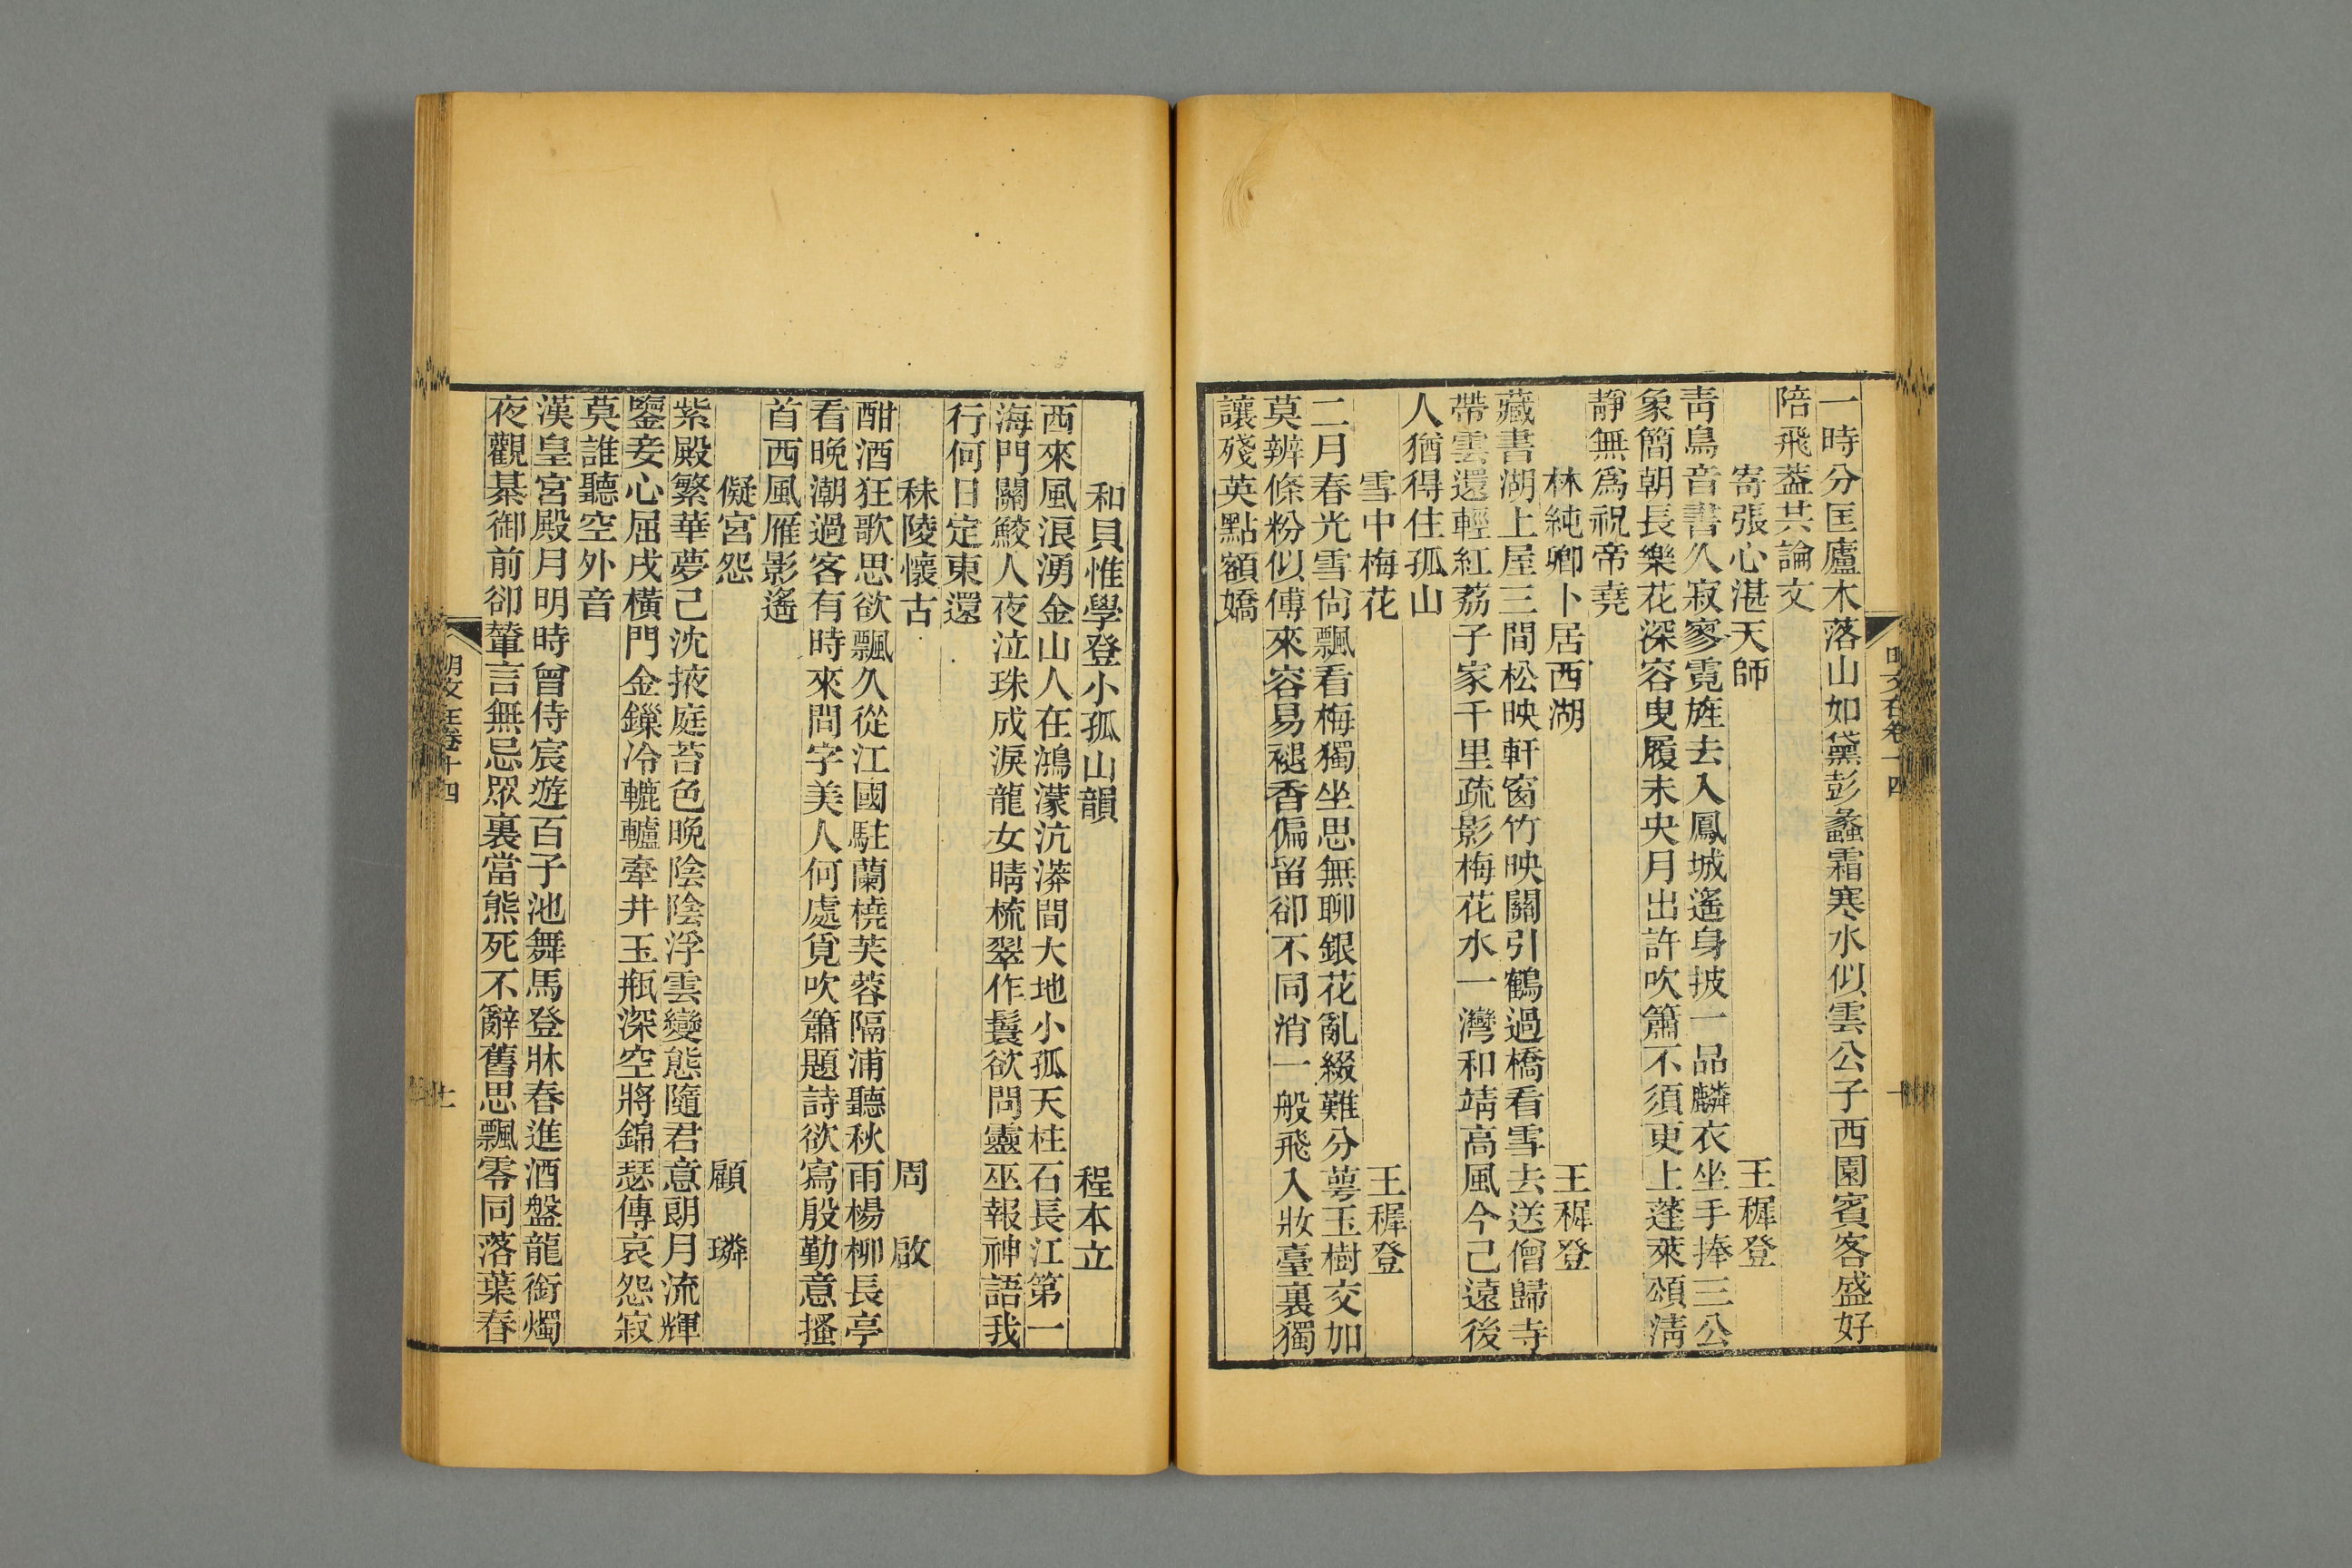 一時分匡廬木落山如黛彭蠡霜寒水似雲公子西園賓客盛好
陪飛葢共論文
寄張心湛天師 王穉登
靑鳥音書久寂寥霓旌去入鳳城遙身披一品麟衣坐手捧三公
象簡朝長樂花深容曳履未央月出許吹簫不須更上蓬萊頌淸
靜無爲祝帝堯
林純卿卜居西湖 王穉登
藏書湖上屋三間松映軒窗竹映關引鶴過橋看雪去送僧歸寺
帶雲還輕紅荔子家千里疏影梅花水一灣和靖高風今已遠後
人猶得住孤山
雪中梅花 王穉登
二月春光雪尙飄看梅獨坐思無聊銀花亂綴難分萼玉樹交加
莫辨條粉似傅來容易褪香偏留卻不同消一般飛入妝臺裏獨
讓殘英點額嬌
和貝惟學登小孤山韻 程本立
西來風浪湧金山人在鴻濛沆漭間大地小孤天柱石長江第一
海門關鮫人夜泣珠成淚龍女晴梳翠作鬟欲問靈巫報神語我
行何日定東還
秣陵懷古 周啟
酣酒狂歌思欲飄久從江國駐蘭橈芙蓉隔浦聽秋雨楊柳長亭
看晚潮過客有時來問字美人何處覓吹簫題詩欲寫殷勤意搔
首西風雁影遙
儗宮怨 顧璘
紫殿繁華夢已沈掖庭苔色晚陰陰浮雲變態隨君意朗月流輝
鑒妾心屈戌橫門金鏁冷轆轤牽井玉瓶深空將錦瑟傳哀怨寂
莫誰聽空外音
漢皇宮殿月明時曾侍宸遊百子池舞馬登牀春進酒盤龍銜燭
夜觀棊御前卻輦言無忌眾裏當熊死不辭舊思飄零同落葉春
明文在卷十四